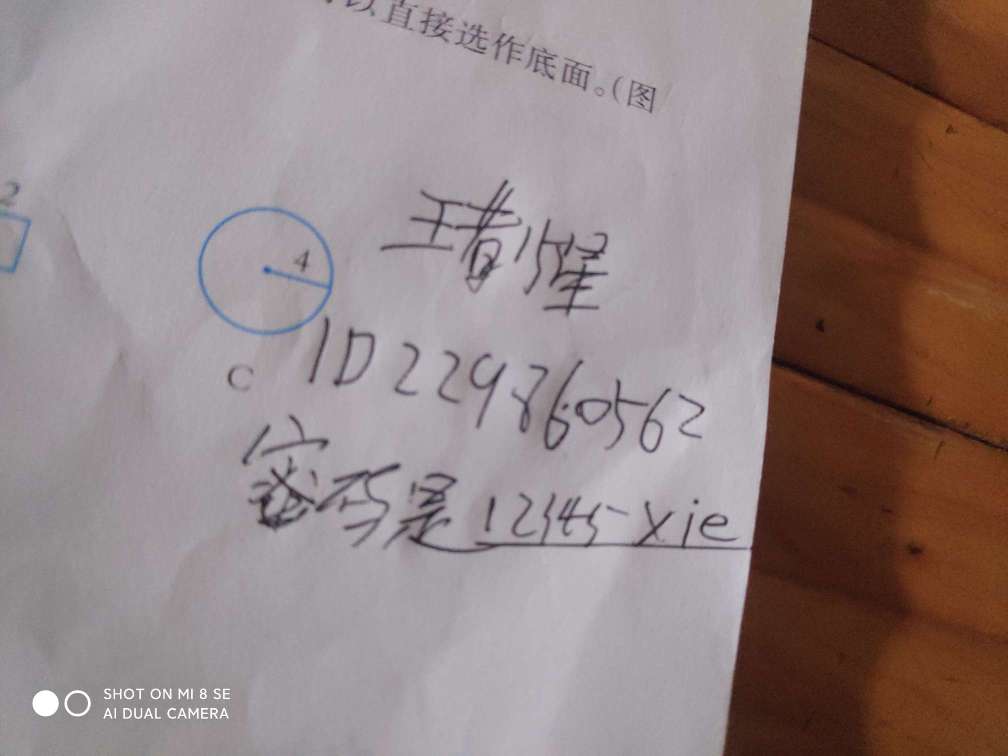 以直接选作底面。(图
2
4
王者15星
C
ID2298605 62
密码是12345xie
SHOT ON MI 8 SE
AI DUAL CAMERA